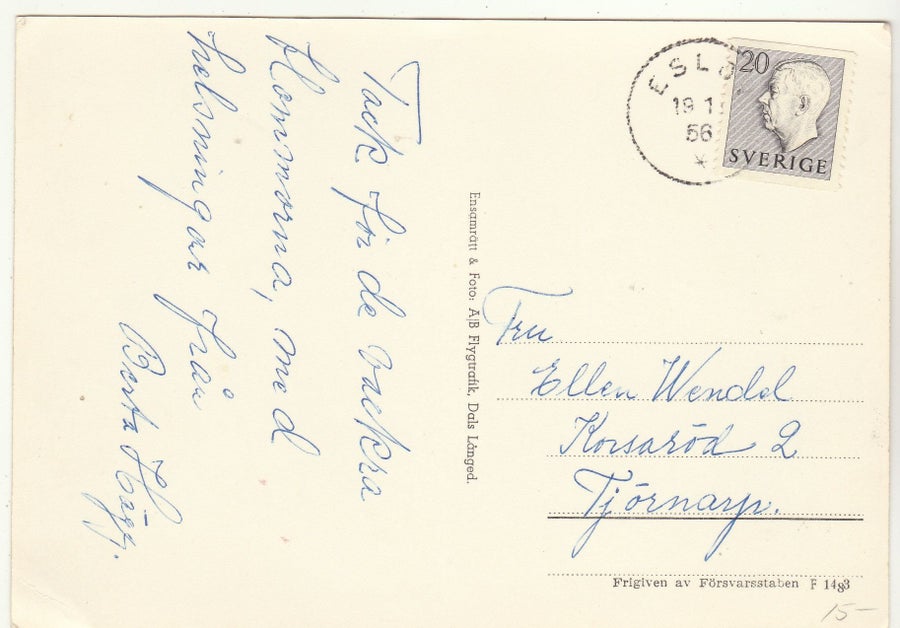 Tack för de vackra
blommorna, med
helsningar från
Berta Hägg.
Ensamrätt & Foto: A|B Flygtrafik, Dals Långed.
ESLÖ
19 1
56
20
SVERIGE
Fru
Ellen Wendel
Korsaröd 2
Tjörnarp.
Frigiven av Försvarsstaben
15-